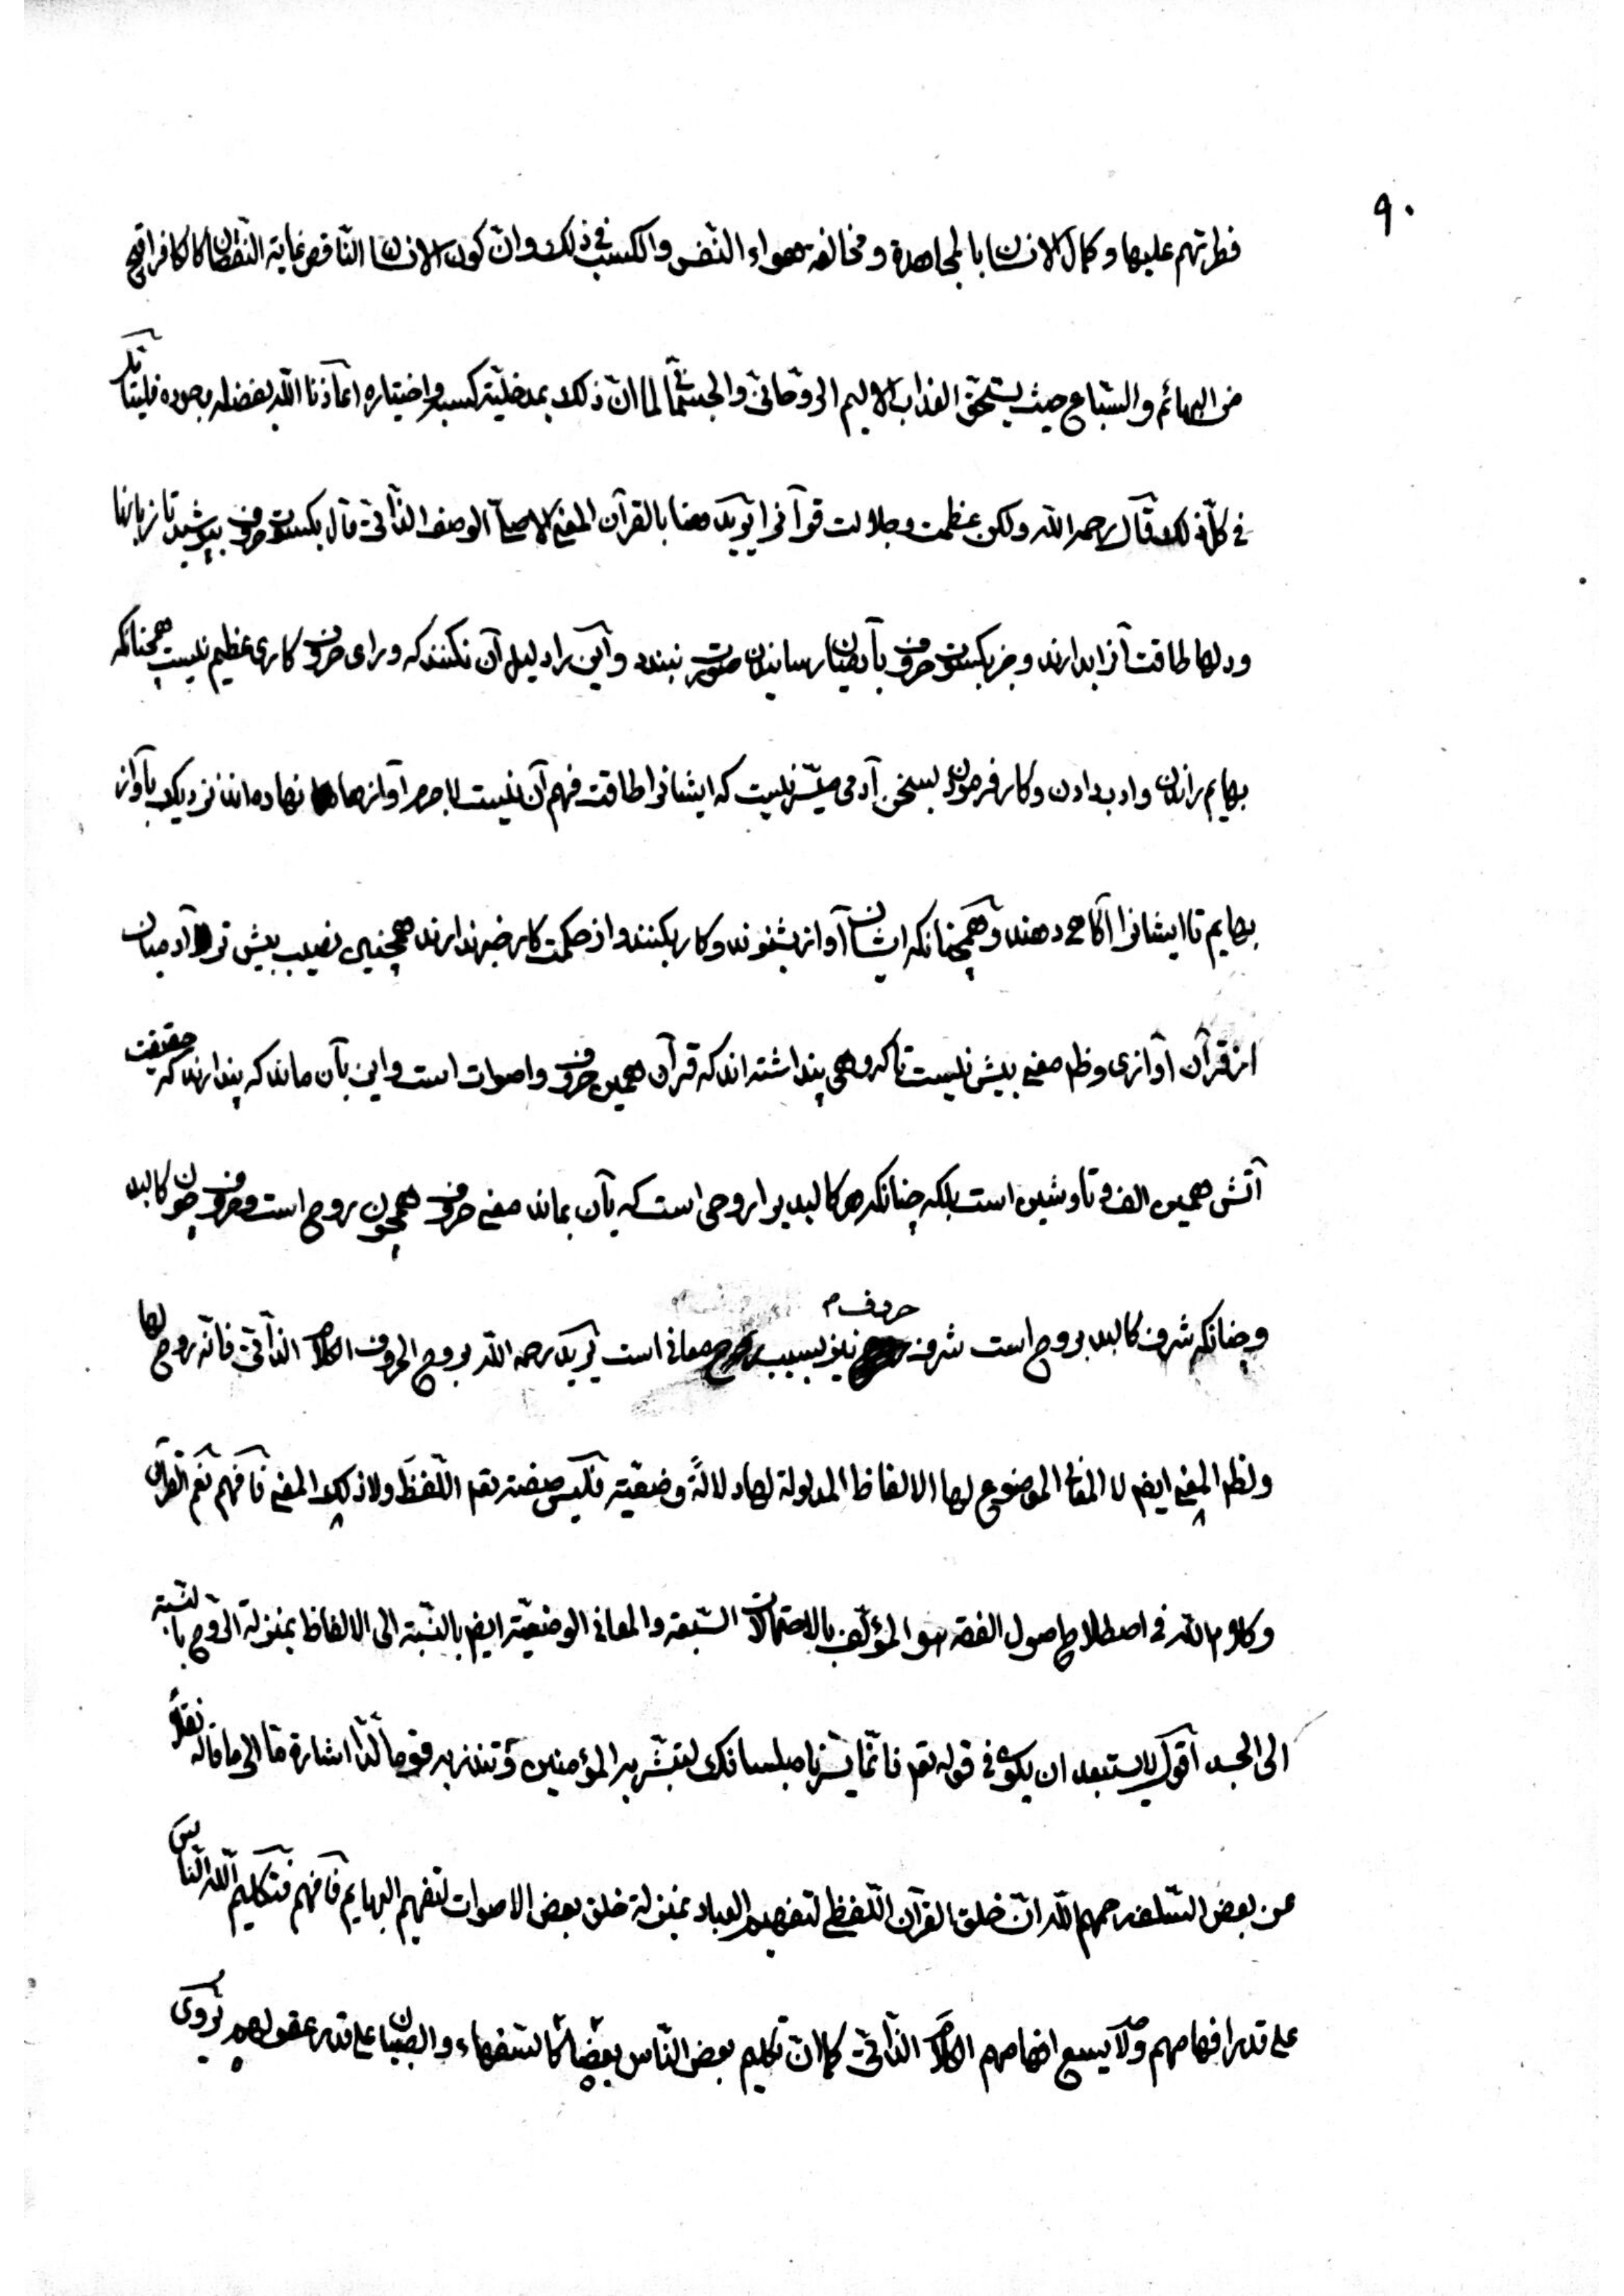 ٩٠
فطرتهم عليها وكمال الانسان بالمجاهدة ومخالفة هواء النفس والكسب فى ذلك وان كون الانسان الناقص غاية النقصان كالكافر اقبح
من البهائم والسباع حيث يستحق العذاب الاليم الروحانى والجسمانى لما ان ذلك بمدخلية كسبه واختياره اعاذنا الله بفضله وجوده فليتأمل
فى كل ذلك قال رحمه الله ولكن عظمت وجلالت قرآنرا يريد هنا بالقرآن المعنى الوصف الذاتى قال بكسوت حروف بپوشيد تا زبانها
ودلها طاقت آنرا بدارند وجز بكسوت حروف بآدميان رسانيدن صورت نبندد واين را دليل آن نكنند كه وراى حروف كارى عظيم نيست همچنانكه
بهايم راندن وادب دادن وكار فرمودن بسخن آدمى ميسر نيست كه ايشانرا طاقت فهم آن نيست لاجرم آوازها نهاده‌اند نزديك بآواز
بهايم تا ايشانرا آگاهى دهند وهمچنانكه ايشان آواز بشنوند وكار بكنند واز حكمت كار خبر ندارند همچنين نصيب بيشتر آدميان
از قرآن آوازى وظاهر معنى بيش نيست تا گروهى پنداشته‌اند كه قرآن همين حروف واصوات است واين بآن ماند كه پندارند كه حقيقت
آتش همين الف وتا وشين است بلكه چنانكه هر كالبديرا روحى است كه بآن بماند معنى حروف همچون روح است وحروف چون كالبد
وچنانكه شرف كالبد بروح است شرف حروف نيز بسبب روح معانى است يريد رحمه الله بروح الحروف الكلام الذاتى فانه روح لها
ولظاهر المعنى ايضا لا المعانى الموضوع لها الالفاظ المدلولة لها دلالة وضعية فليس صفته تعالى اللفظ ولا ذلك المعنى فافهم نعم القرآن
وكلام الله فى اصطلاح اصول الفقه هو المؤلف بالاحتمالات السبعة والمعانى الوضعية ايضا بالنسبة الى الالفاظ بمنزلة الروح بالنسبة
الى الجسد اقول لا يستبعد ان يكون فى قوله تعالى فانما يسرناه بلسانك لتبشر به المؤمنين وتنذر به قوما لدا اشارة ما الى ما قاله نقلا
عن بعض السلف رحمهم الله ان خلق القرآن اللفظى لتفهيم العباد بمنزلة خلق بعض الاصوات لتفهيم البهايم فافهم فتكليم الله الناس
على قدر افهامهم ولا يسع افهامهم الكلام الذاتى كما ان تكليم بعض الناس بعضا كالسفهاء والصبيان على قدر عقولهم يروى